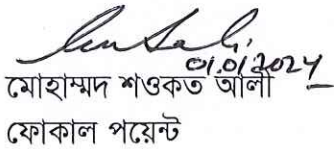 01.01.2024
মোহাম্মদ শওকত আলী
ফোকাল পয়েন্ট